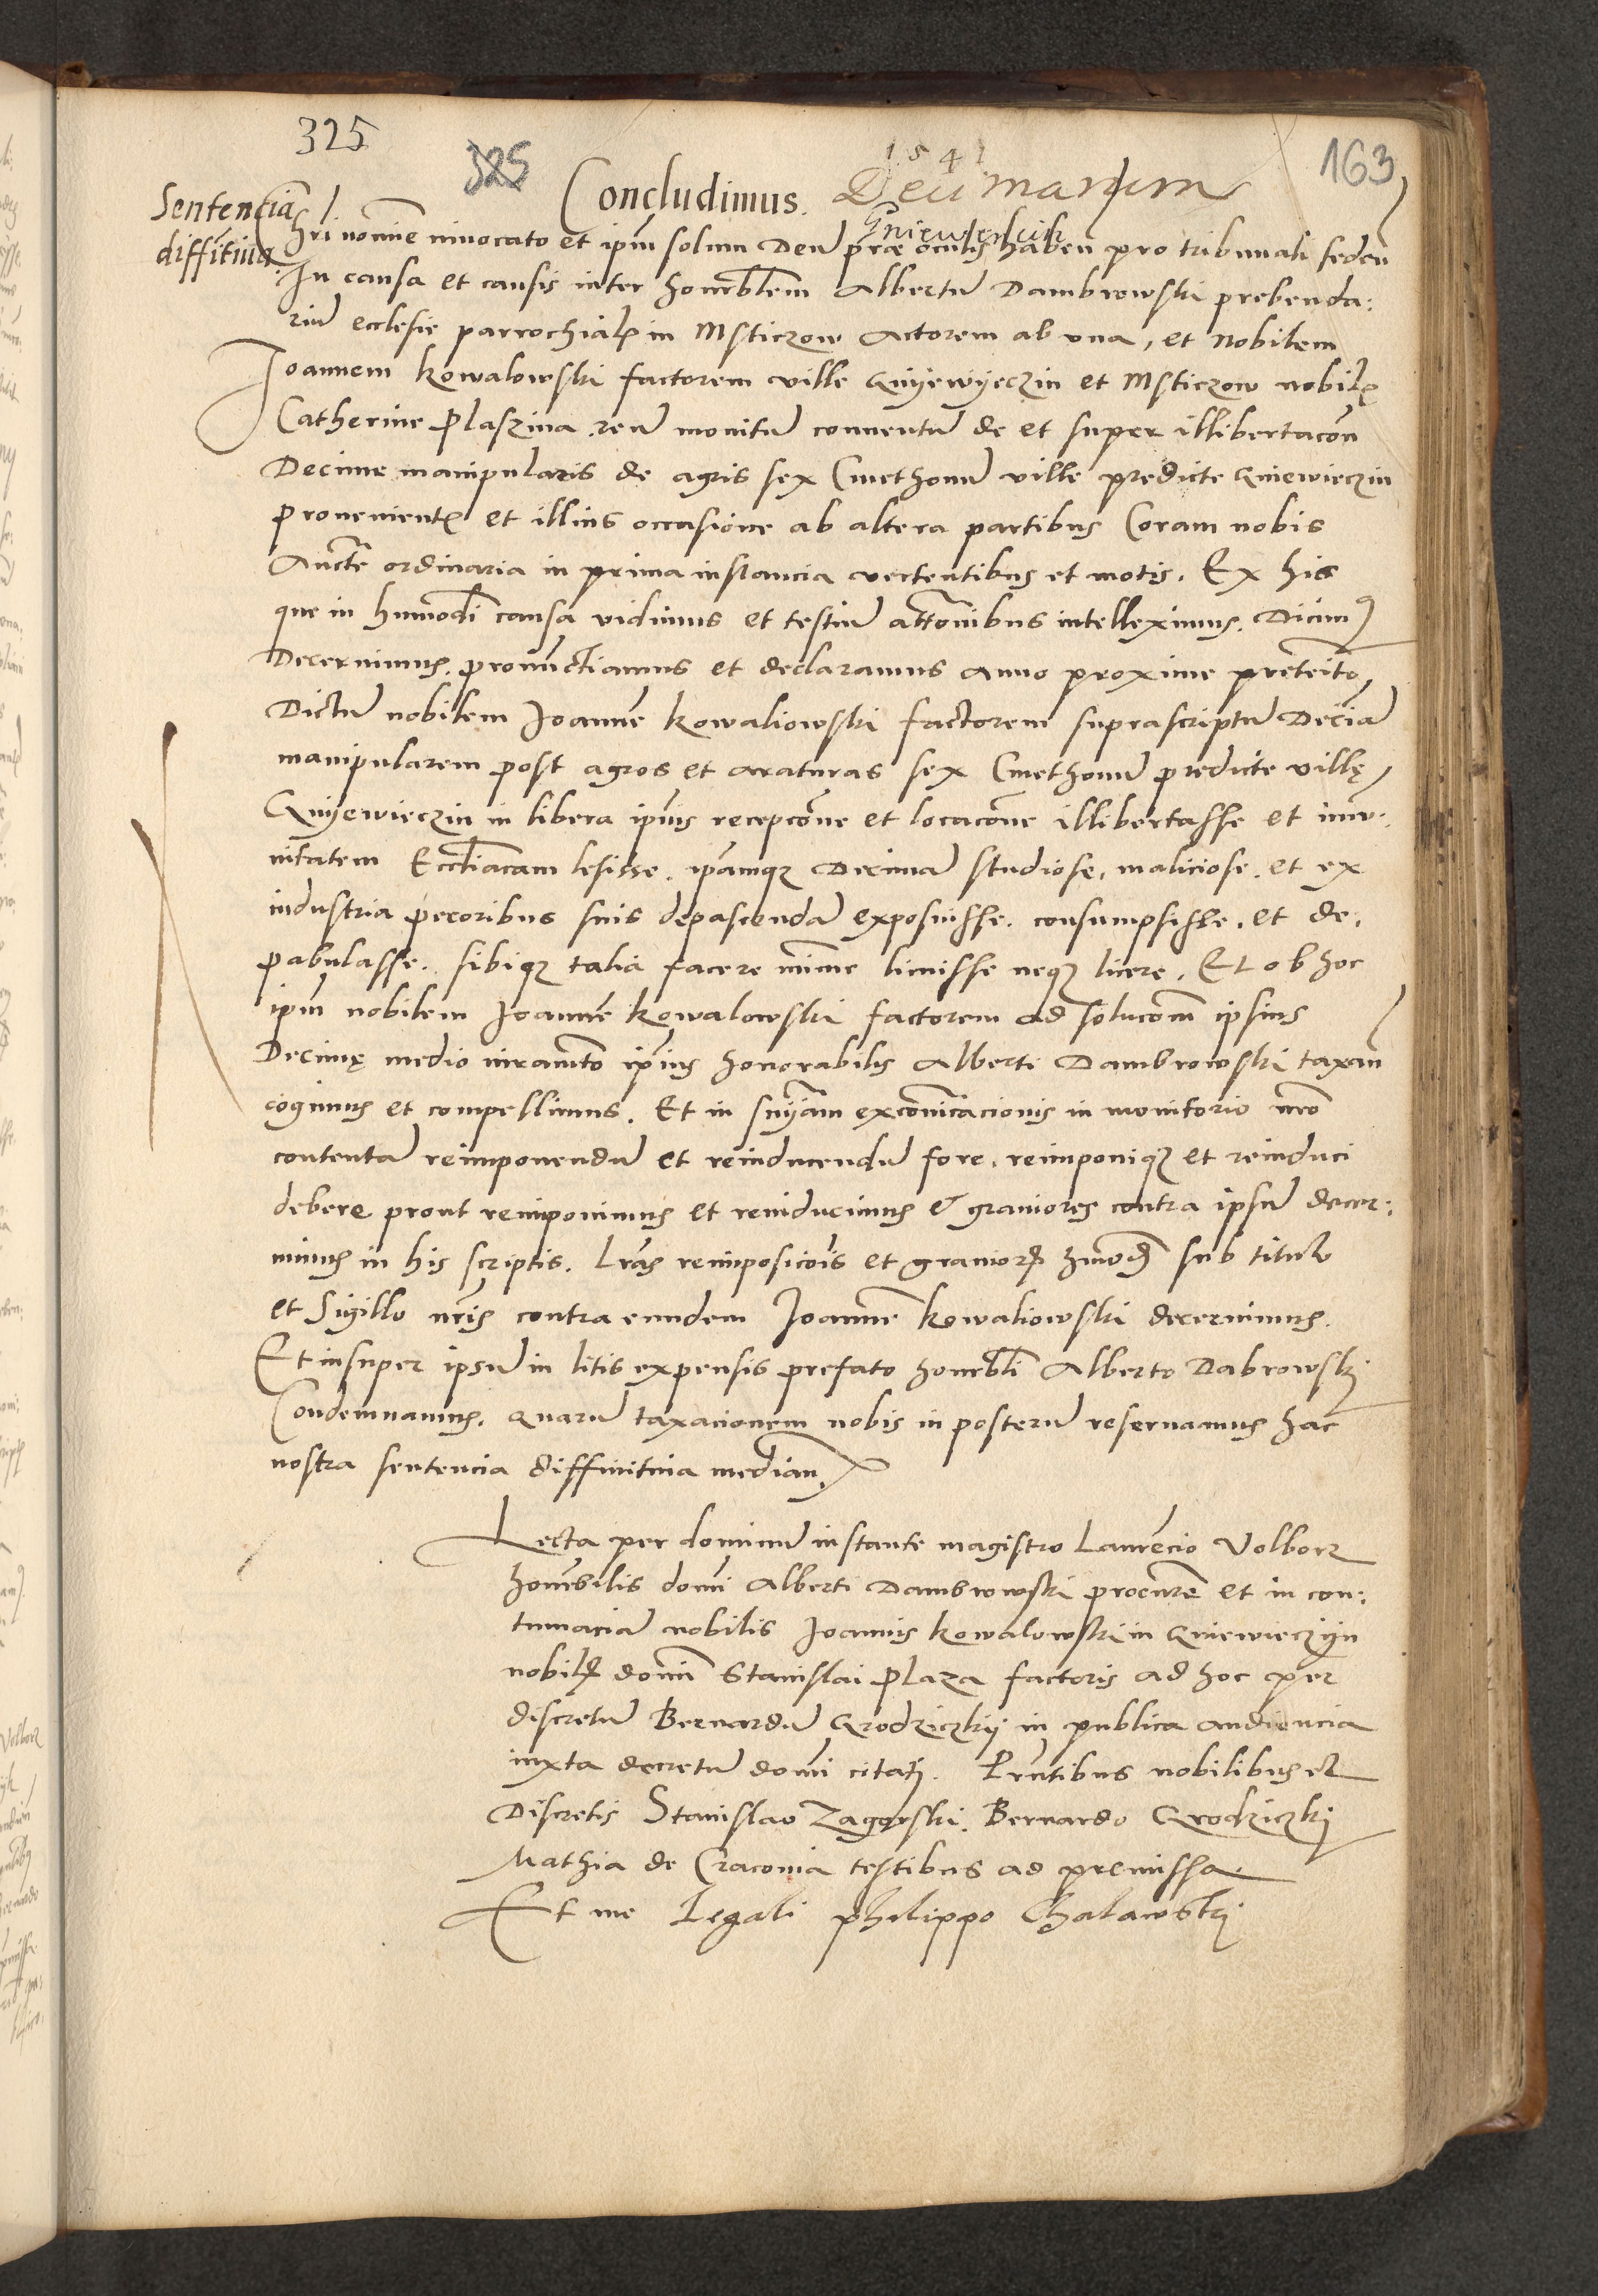 325
325
1541
163
Concludimus. Decimarum
Gniewięcin
Sentencia
diffitiua
Chri nomine inuocato et ipm solum Deu prae oculis haben pro tribunali seden
In causa et causis inter honorblem Albertu Dambrowski prebenda:
riu ecclesie parrochialis in Msticzow Actorem ab vna, et Nobilem
Joannem Kowalowski factorem ville Gnyewyeczin et Msticzow nobilis
Catherine Plaszina reu monitu conuentu de et super illibertacon
Decime manipularis de agris sex Cmethonu ville predicte Gniewieczin
prouenientis et illius occasione ab altera partibus Coram nobis
Aucte ordinaria in prima instancia vertentibus et motis. Ex his
que in humodi causa vidimus et testiu attonibus intelleximus. Dicimus
Decernimus. pronunctiamus et declaramus anno proxime preterito,
Dictu nobilem Joanne Kowaliowski factorem suprascriptu Decia
manipularem post agros et araturas sex Cmethonu predicte villę
Gnyewieczin in libera ipius recepcone et locacone illibertasse et imu:
nitatem Ecctiacam lesisse. ipamque Decima studiose, maliciose. et ex
industria pecoribus suis depascenda exposuisse. consumpsisse. et de:
pabulasse. sibique talia facere mime licuisse neque licere. Et ob hoc
ipm nobilem Joanne Kowalowski factorem ad solucom ipsius
Decimę medio iuramto ipius honorabilis Alberti Dambrowski taxan
cogimus et compellimus. Et in snyam excomicacionis in monitorio nro
contenta reimponendu et reinducendu fore. reimponique et reinduci
debere prout reimponimus et reinducimus & grauiores contra ipsu decer:
nimus in his scriptis. Lras reimposicois et grauiorum hmodi sub titulo
et Sigillo nris contra eundem Joanne Kowaliowski decernimus.
Et insuper ipsu in litis expensis prefato honorbli Alberto Dabrowski
Condemnamus. Quaru taxacionem nobis in posteru reseruamus hac
nostra sentencia diffinitiuia median
Lecta per dominu instante magistro Laurecio Volborz
honorbilis domi Alberti Dambrowski procure et in con:
tumacia nobilis Joannis Kowalowski in Gniewieczyn
nobilis domi Stanislai Plaza factoris ad hoc per
discretu Bernardu Grodziczkij in publica audiencia
iuxta decretu domi citati. Pntibus nobilibus et
Discretis Stanislao Zagorski. Bernardo Grodziczkij
Mathia de Craconia testibus ad premissa.
Et me Legali philippo Chalawski